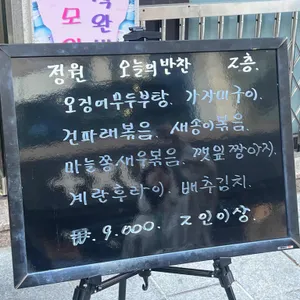 모
정원 오늘의반찬 2층.
오징어무두부탕. 가자미구이.
건파래볶음. 새송이볶음.
마늘쫑새우볶음. 깻잎짱아지.
계란후라이. 배추김치.
₩. 9.000. 2인이상.